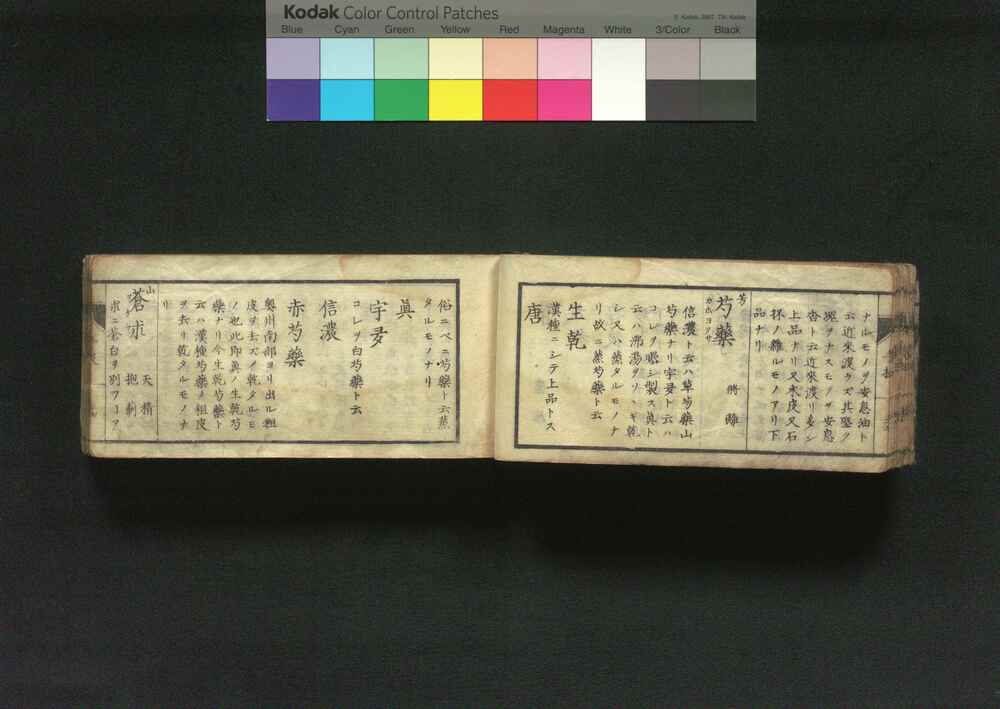 Kodak Color Control Patches
© Kodak, 2007 TM: Kodak
Blue Cyan Green Yellow Red Magenta White 3/Color Black
ナルモノヲ安息油ト
云近來渡ラズ其堅ク
塊ヲナスモノヲ安息
香ト云近來渡リ多シ
上品ナリ又木皮又石
抔ノ雜ルモノアリ下
品ナリ
芍藥 將離
カホヨクサ
信濃ト云ハ草芍藥山
芍藥ナリ宇多ト云ハ
コレヲ暖シ製ス眞ト
云ハ沸湯ヲソヽギ乾
シ又ハ蒸タルモノナ
リ故ニ蒸芍藥ト云
生乾
漢種ニシテ上品トス
唐
俗ニベニ芍藥ト云蒸
タルモノナリ
眞
宇多
コレヲ白芍藥ト云
信濃
赤芍藥
奧州南部ヨリ出ル粗
皮ヲ去ズノ乾タルモ
ノ也此即眞ノ生乾芍
藥ナリ今生乾芍藥ト
云ハ漢種芍藥ノ粗皮
ヲ去リ乾タルモノナ
リ
蒼朮 天精
山 抱薊
ホニ蒼白ヲ別フーア